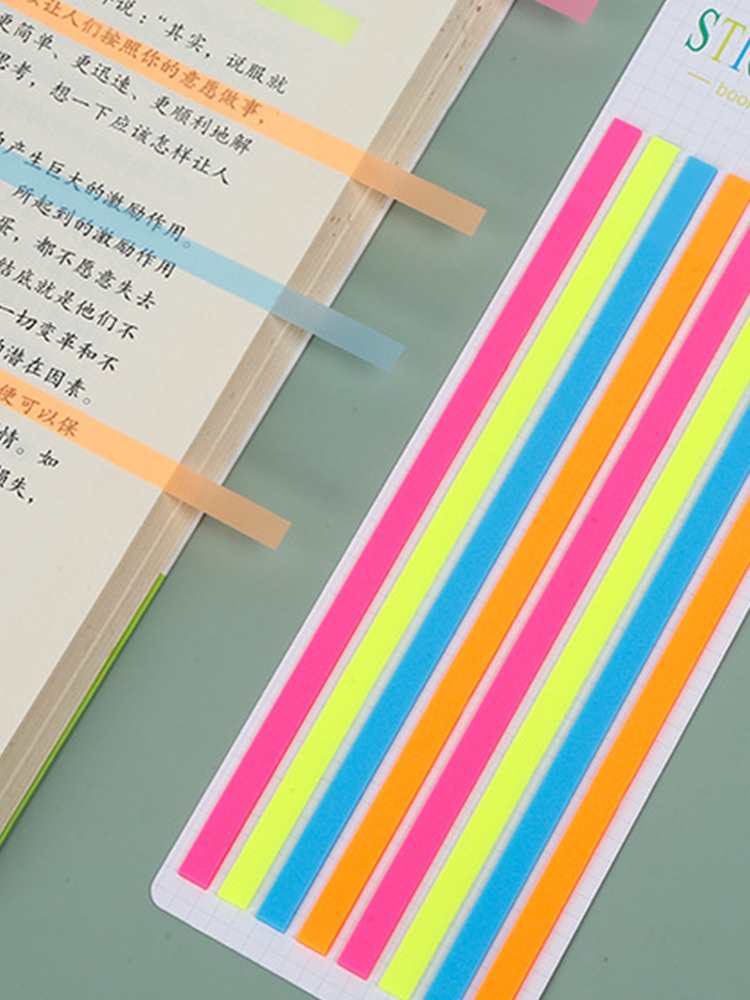 让人们按照你的意愿做事,
说:“其实,说服就
更简单、更迅速、更顺利地解
思考,想一下应该怎样让人
产生巨大的激励作用。
所起到的激励作用
蛋,都不愿意失去
钻底就是他们不
一切变革和不
潜在因素。
便可以保
情。如
损失,
STIC
book